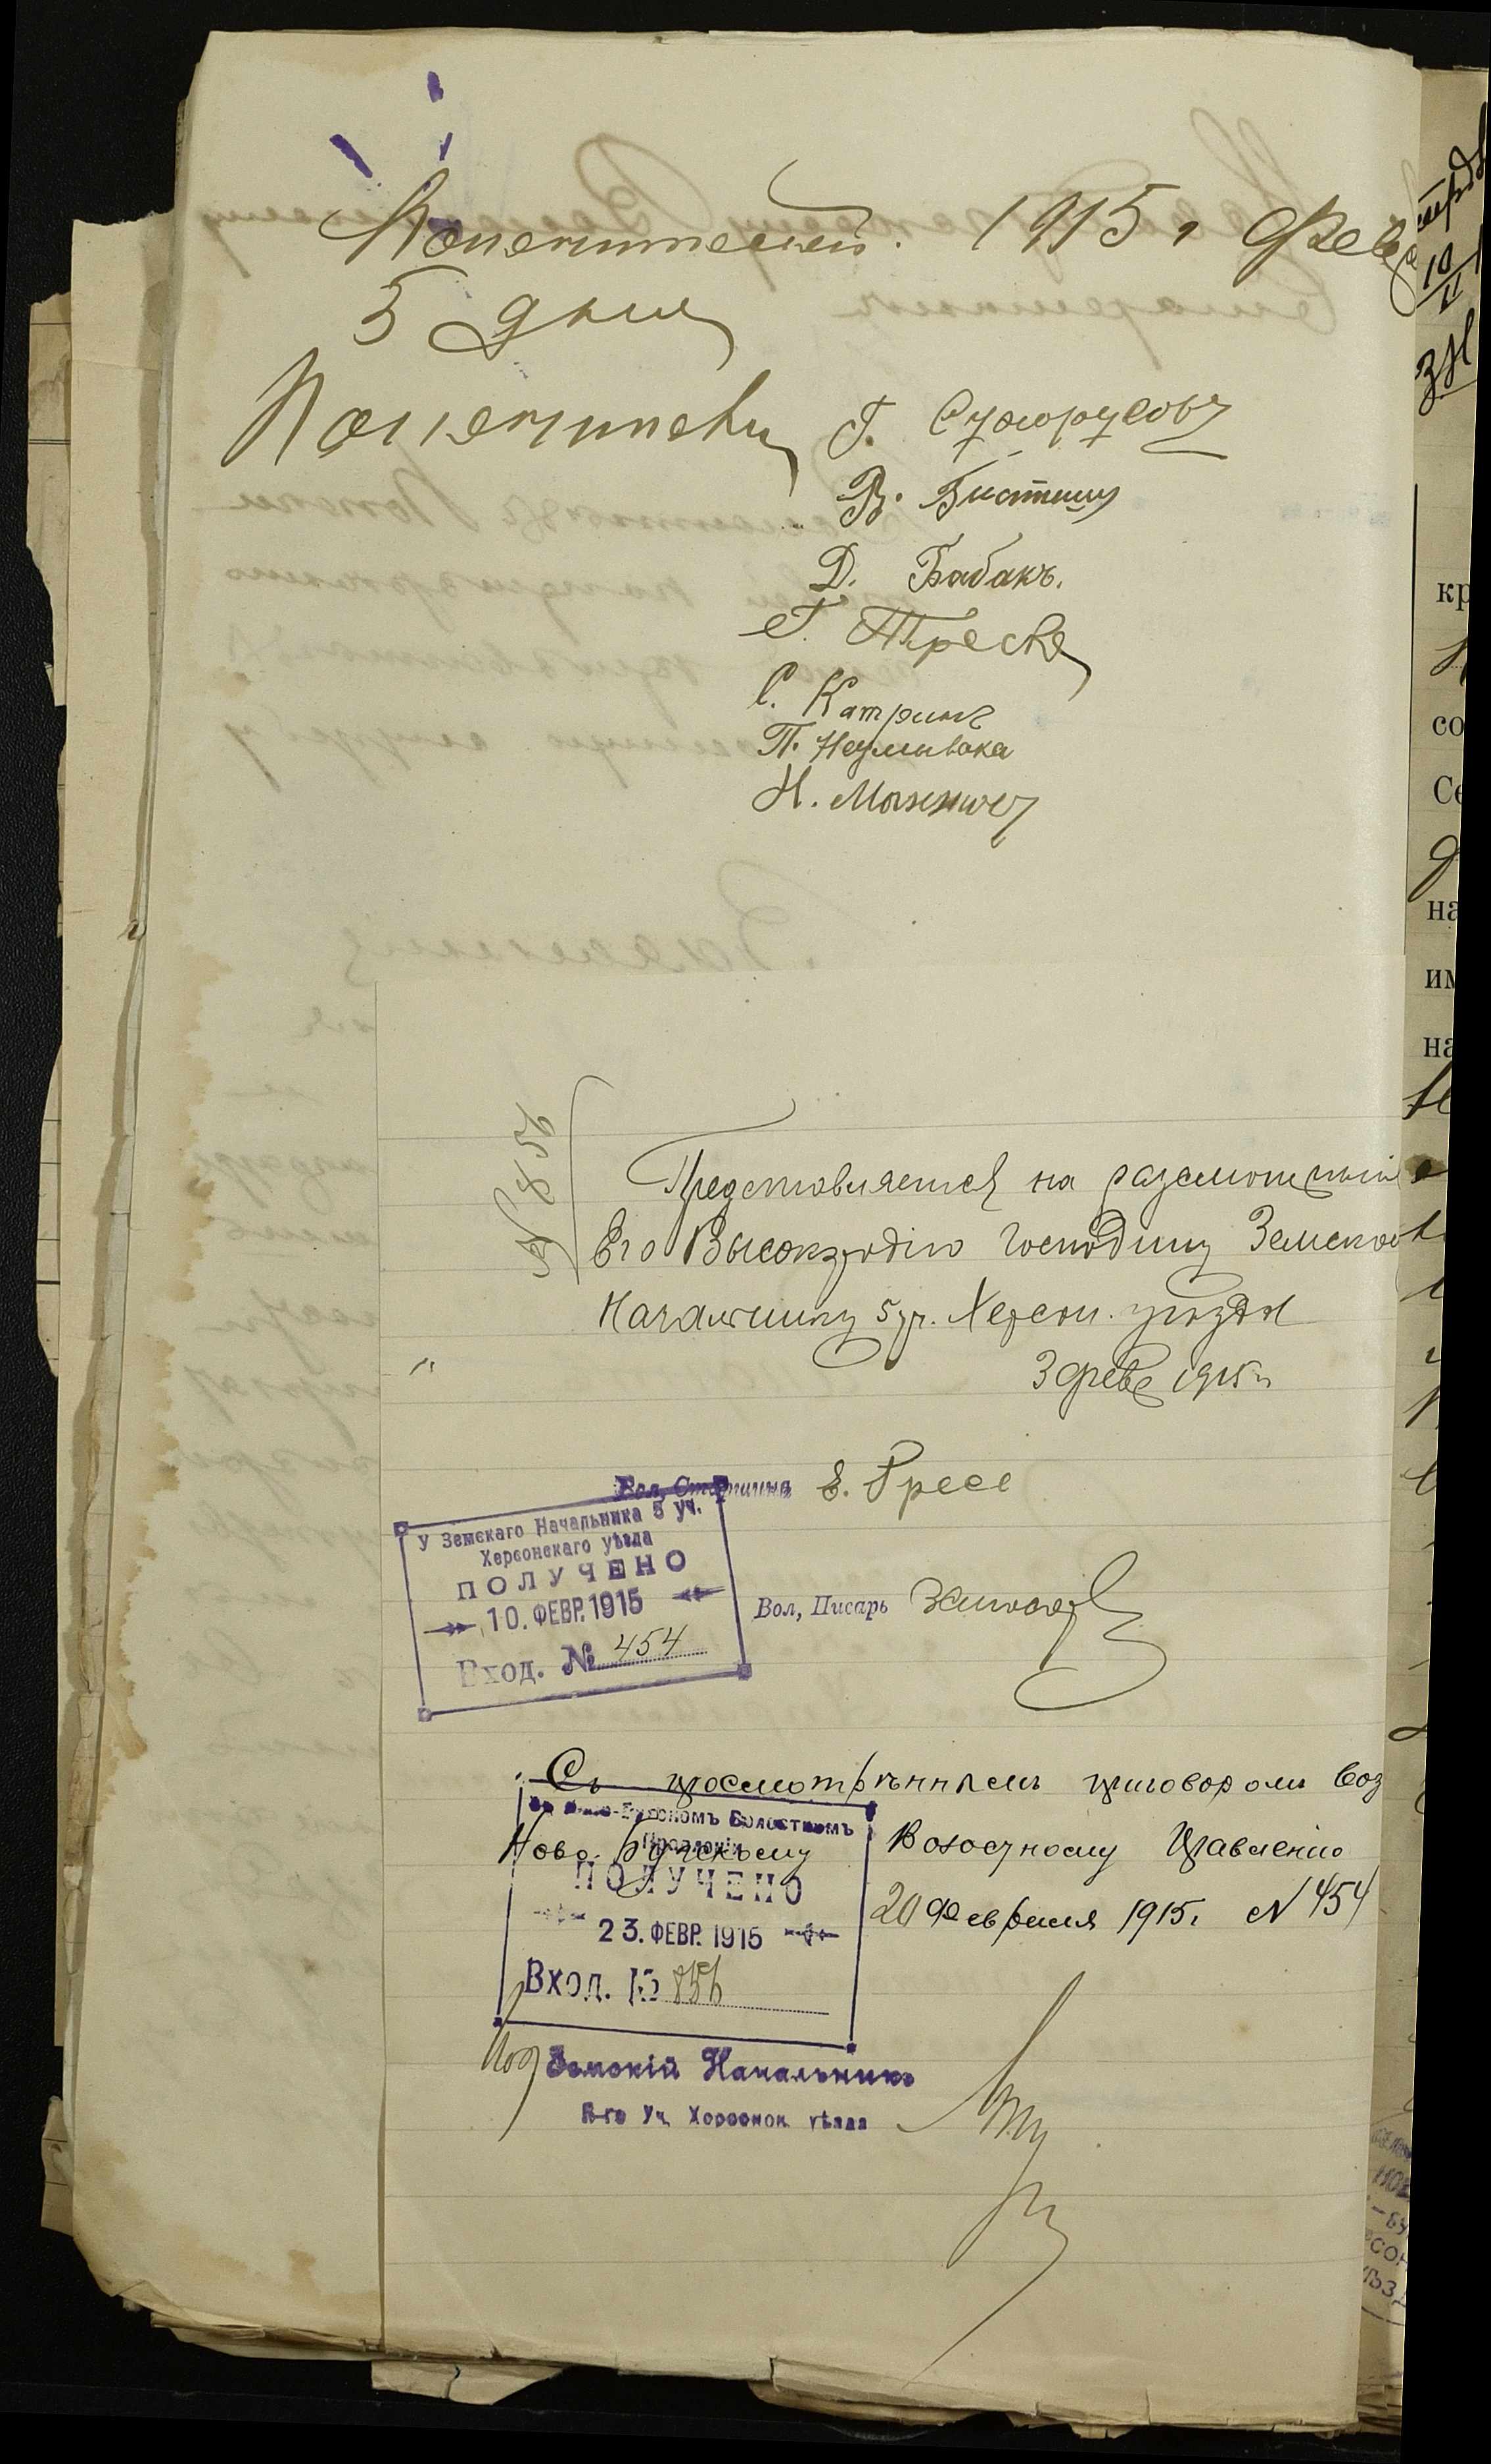 Попечителей. 1915 г Февр
5 дня
Попечители Г. Сухоруковъ
В.
Д. Бабакъ.
Г. Треске
С. Катринъ
П. Неумывака
Н.
№ 856
Представляется на разсмотрѣніе
Его Высокородію Господину Земскому
Начальнику 5 уч. Херсон. уѣзда
февр 1915 г
Вол, Старшина Е. Гресс
У Земскаго Начальника 5 уч.
Херсонскаго уѣзда
ПОЛУЧЕНО
10. ФЕВР. 1915
Вход. № 454
Вол, Писарь
Съ просмотрѣннымъ приговоромъ воз
Ново-Бугскому Волостному Правленію
20 Февраля 1915 г. № 454
Волостномъ
Правленіи
ПОЛУЧЕНО
23. ФЕВР. 1915
Вход. № 856
Земскій Начальникъ
5-го Уч. Херсонск. уѣзда